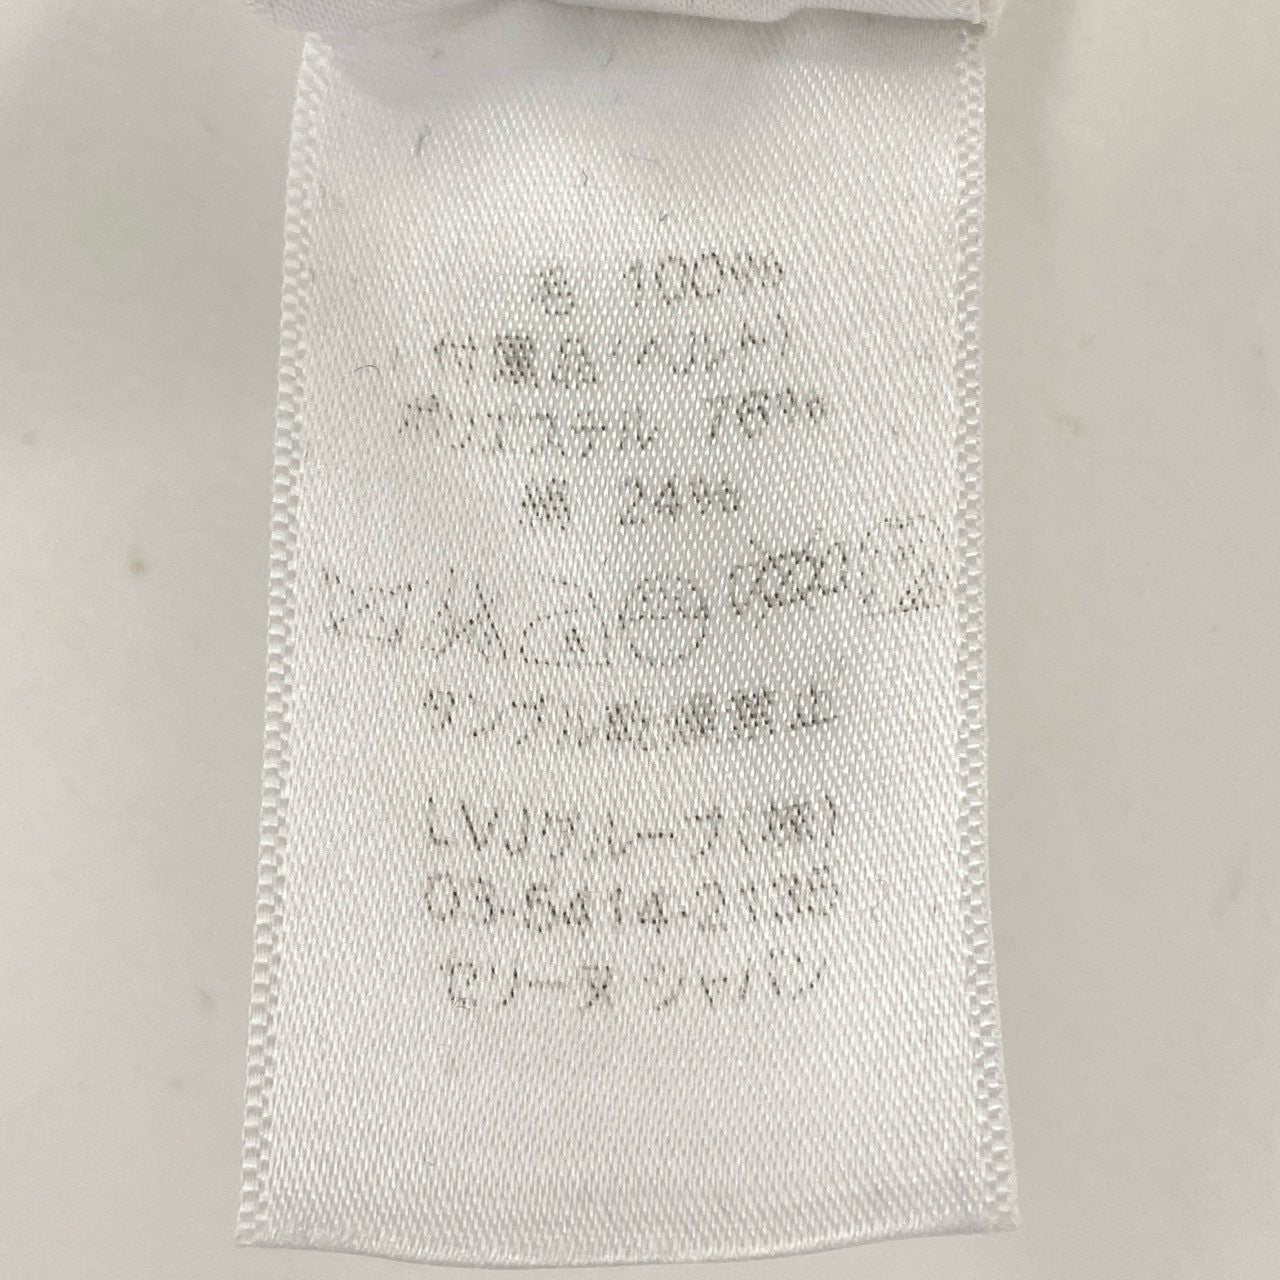 毛 100%
付属品(ベルト)
ポリエステル 76%
綿 24%
サンプル 乾燥禁止
LVJグループ(株)
03-5414-2135
セリーヌ ジャパン